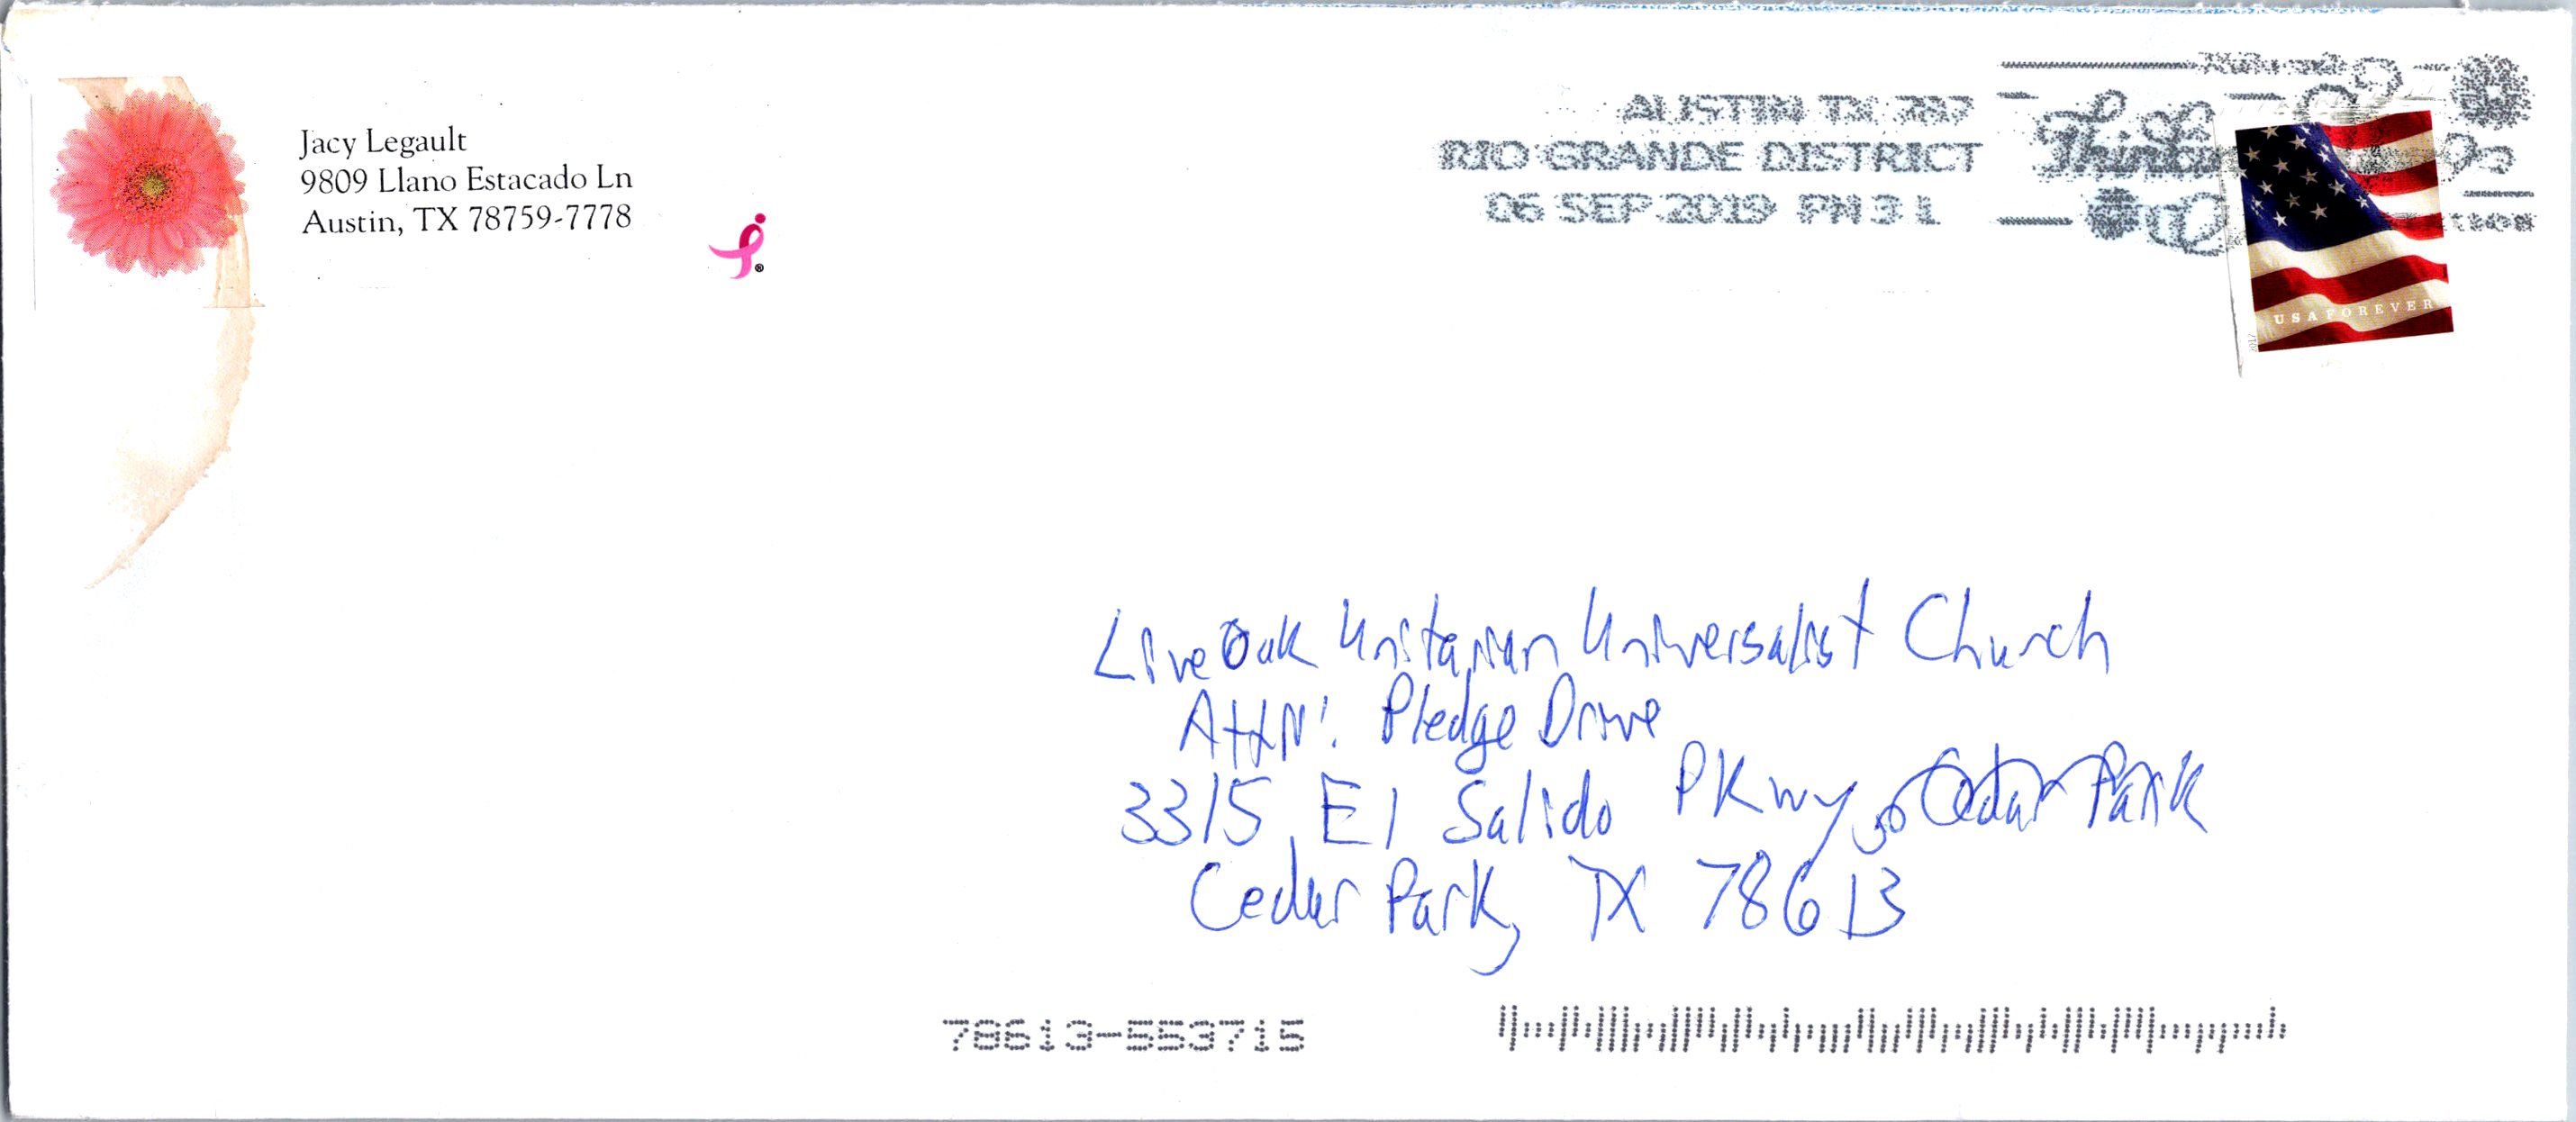 Jacy Legault
9809 Llano Estacado Ln
Austin, TX 78759-7778
®
AUSTIN TX 787
RIO GRANDE DISTRICT
06 SEP 2019 PM 3 L
Thinking
USA FOREVER
2017
Live Oak Unitarian Universalist Church
Attn: Pledge Drive
3315 El Salido Pkwy, Cedar Park
Cedar Park, TX 78613
78613-553715